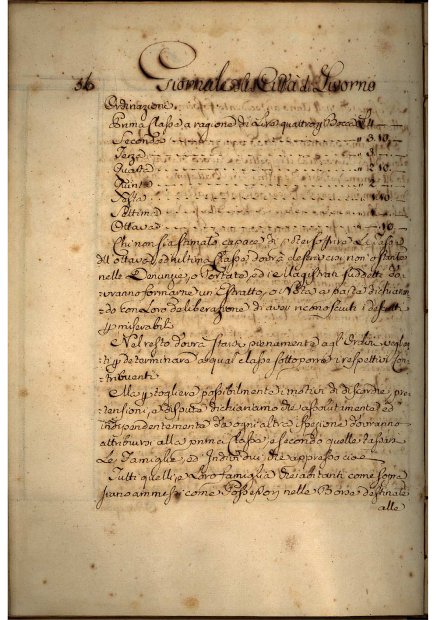 56 Giornale della Città di Livorno
Ordinazione
Prima Classe a ragione di Lire quattro p Bocca " 4
Seconda " 3.10
Terza " 3
Quarta " 2.10
Quinta " 2
Sesta " 1
Settima " 1
Ottava " 10
Chi non sia stimato capace di
All'ottava, ed ultima Classe dovrà descriversi non ostante
nelle Denunzie, o Portate, ed i Magistrati suddetti do
vranno formarne un Estratto, o Nota a parte dichiaran
do con Loro deliberazione di aver riconosciuti i descritti
p miserabili
Nel resto dovrà starsi pienamente agl'Ordini veglian
ti p determinare a qual classe sottoporre i respettivi Con
tribuenti
Ma p togliere possibilmente i motivi di discordie, pre
tensioni, e dispute dichiariamo che assolutamente ed
indipendentemente da ogni altra ispezione dovranno
attribuirsi alla prima Classe, e secondo quella tassarsi
Le Famiglie, ed Individui che appresso cioè
Tutti quelli, e Loro famiglia che abitanti come sopra
siano ammessi come Possessori nelle Borse destinate
alle